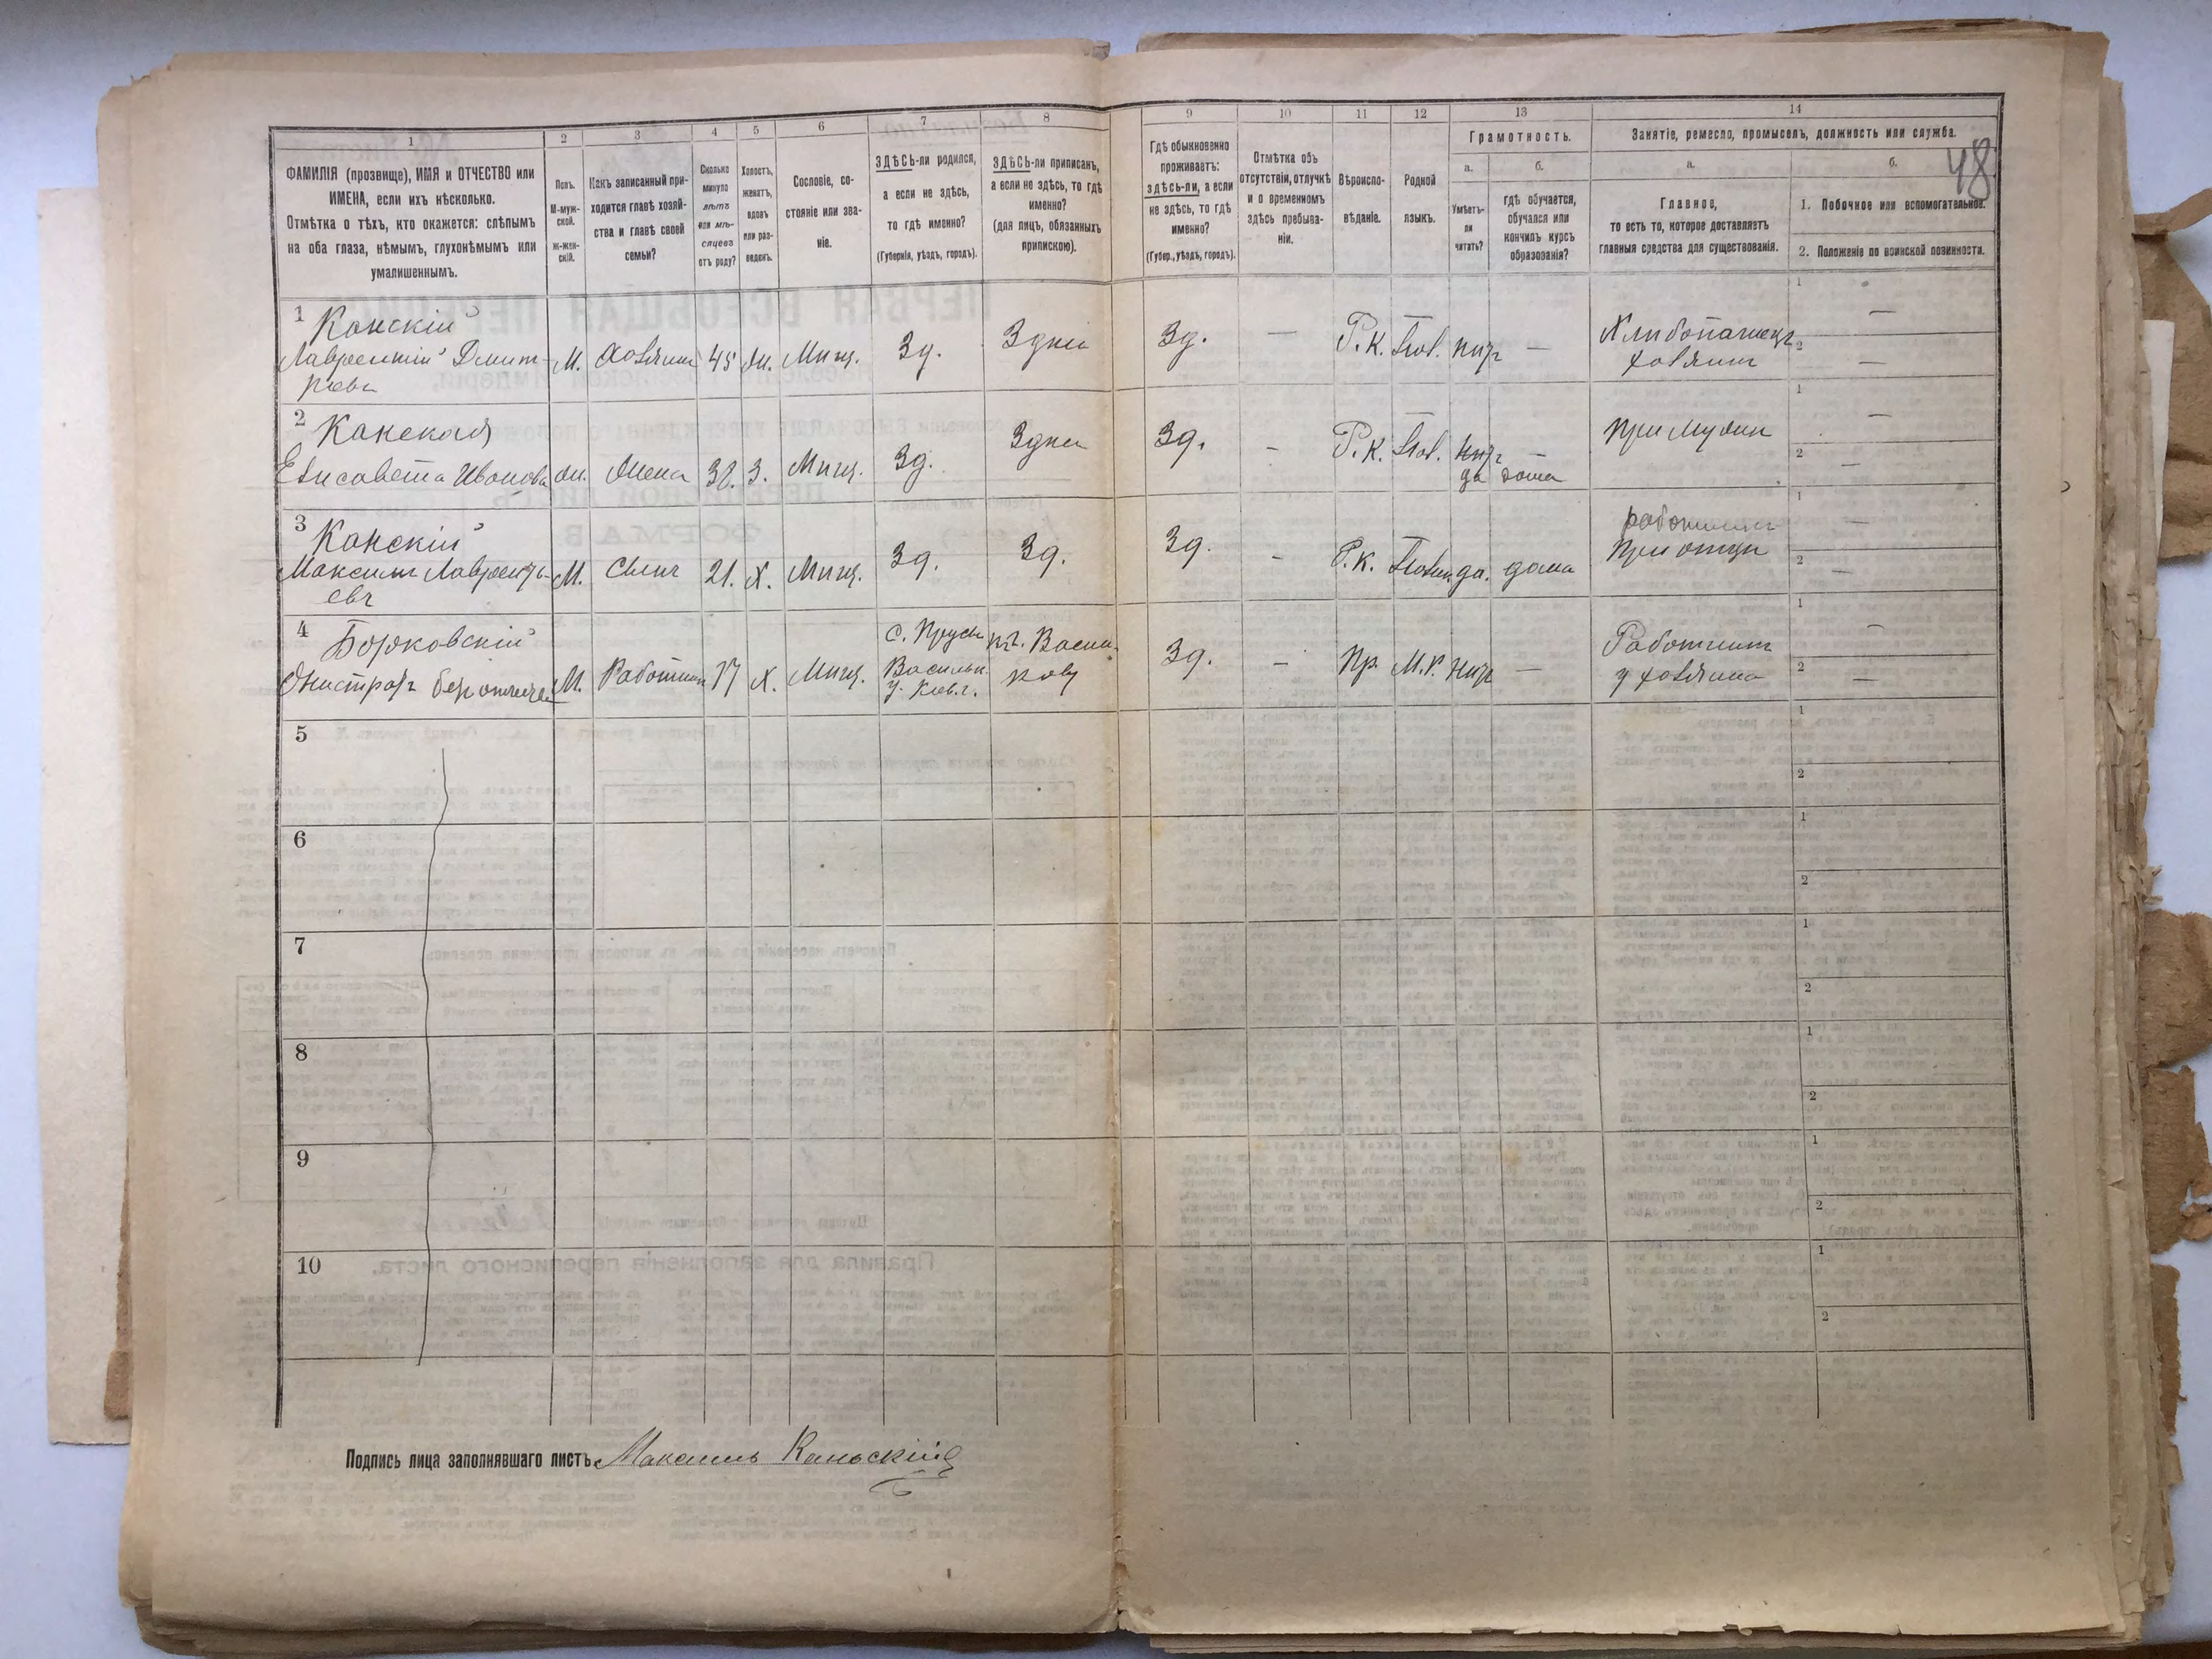 1
2
3
4
5
6
7
8
ФАМИЛІЯ (прозвище), ИМЯ и ОТЧЕСТВО или
ИМЕНА, если ихъ нѣсколько.
Отмѣтка о тѣхъ, кто окажется: слѣпымъ
на оба глаза, нѣмымъ, глухонѣмымъ или
умалишеннымъ.
Полъ.
М-муж-
ской.
ж-жен-
скій.
Какъ записанный при-
ходится главѣ хозяй-
ства и главѣ своей
семьи?
Сколько
минуло
лѣтъ
или мѣ-
сяцевъ
отъ роду?
Холостъ,
женатъ,
вдовъ
или раз-
веденъ.
Сословіе, со-
стояніе или зва-
ніе.
ЗДѢСЬ-ли родился,
а если не здѣсь,
то гдѣ именно?
(Губернія, уѣздъ, городъ).
ЗДѢСЬ-ли приписанъ,
а если не здѣсь, то гдѣ
именно?
(для лицъ, обязанныхъ
припискою).
9
10
11
12
13
14
Гдѣ обыкновенно
проживаетъ:
здѣсь-ли, а если
не здѣсь, то гдѣ
именно?
(Губер., уѣздъ, городъ).
Отмѣтка объ
отсутствіи, отлучкѣ
и о временномъ
здѣсь пребыва-
ніи.
Вѣроиспо-
вѣданіе.
Родной
языкъ.
Грамотность.
а.
б.
Умѣетъ-
ли
читать?
гдѣ обучается,
обучался или
кончилъ курсъ
образованія?
Занятіе, ремесло, промыселъ, должность или служба.
а.
б.
48
Главное,
то есть то, которое доставляетъ
главныя средства для существованія.
1. Побочное или вспомогательное.
2. Положеніе по воинской повинности.
1 Канскій
Лаврентій Дмит-
ріевъ
М.
Хозяинъ
45
Ж.
Мищ.
Зд.
Здѣсь
Зд.
—
Р.К.
Пол.
нѣт
—
Хлибопашецъ
хозяинъ
1 —
2 —
2 Канская
Елисавета Иванова
Ж.
Жена
38.
З.
Мищ.
Зд.
Здѣсь
Зд.
-
Р.К.
Пол.
нѣт
да
—
дома
При мужи
1 —
2 —
3 Канскій
Максим Лавренть-
евъ
М.
Сынъ
21.
Х.
Мищ.
Зд.
Зд.
Зд.
-
Р.К.
да.
дома
работникъ
При отци
1 —
2 —
4 Борковскій
М.
Работник
17
Х.
Мищ.
с. Прусы
Васильк.
у. Кіев. г.
Васи-
кову
Зд.
-
Пр.
М.Р.
нѣт
—
Работникъ
у хозяина
1 —
2 —
5
1
2
6
1
2
7
1
2
8
1
2
9
1
2
10
1
2
Подпись лица заполнявшаго листъ Максимъ Каньскій